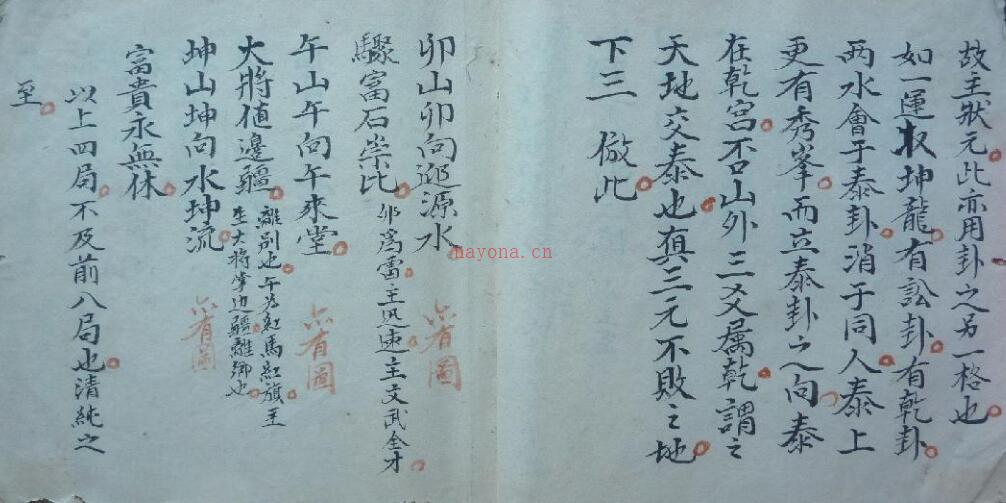 故主狀元。此亦用卦之另一格也。
如一運取坤龍。有訟卦。有乾卦。
两水會于泰卦。消于同人。泰上
更有秀峯。而立泰卦之向。泰
在乾宮。否山外三爻属乾。謂之
天地交泰也。真三元不敗之地。
下三 倣此
卯山卯向迎源水
驟富石崇比。卯爲雷。主迅速。主文武全才。
六有圖
午山午向午來堂。
大將值邊疆。離别也。午为紅馬紅旗。主
生大將掌边疆。離鄉也。
六有圖
坤山坤向水坤流。
富貴永無休。
六有圖
以上四局。不及前八局也。清純之
至。
nayona.cn